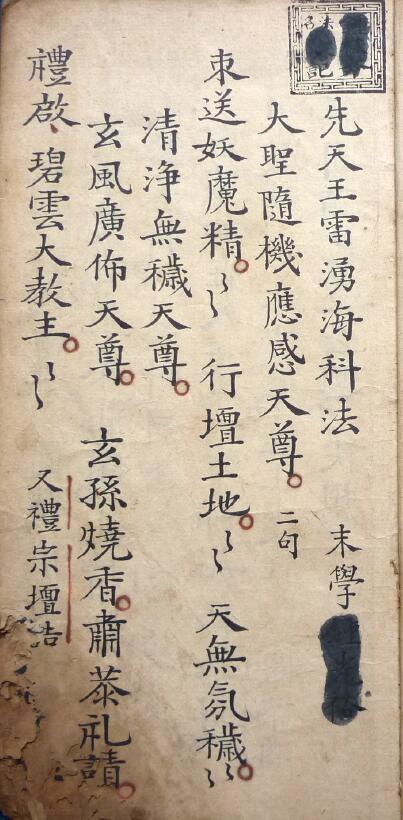 先天王雷湧海科法 末學
大聖隨機應感天尊。二句
束送妖魔精。〻 行壇土地。〻 天無氛穢。〻
清淨無穢天尊。
玄風廣佈天尊。 玄孫燒香。肅恭礼請。
禮啟、碧雲大教主。〻 又禮宗壇
記